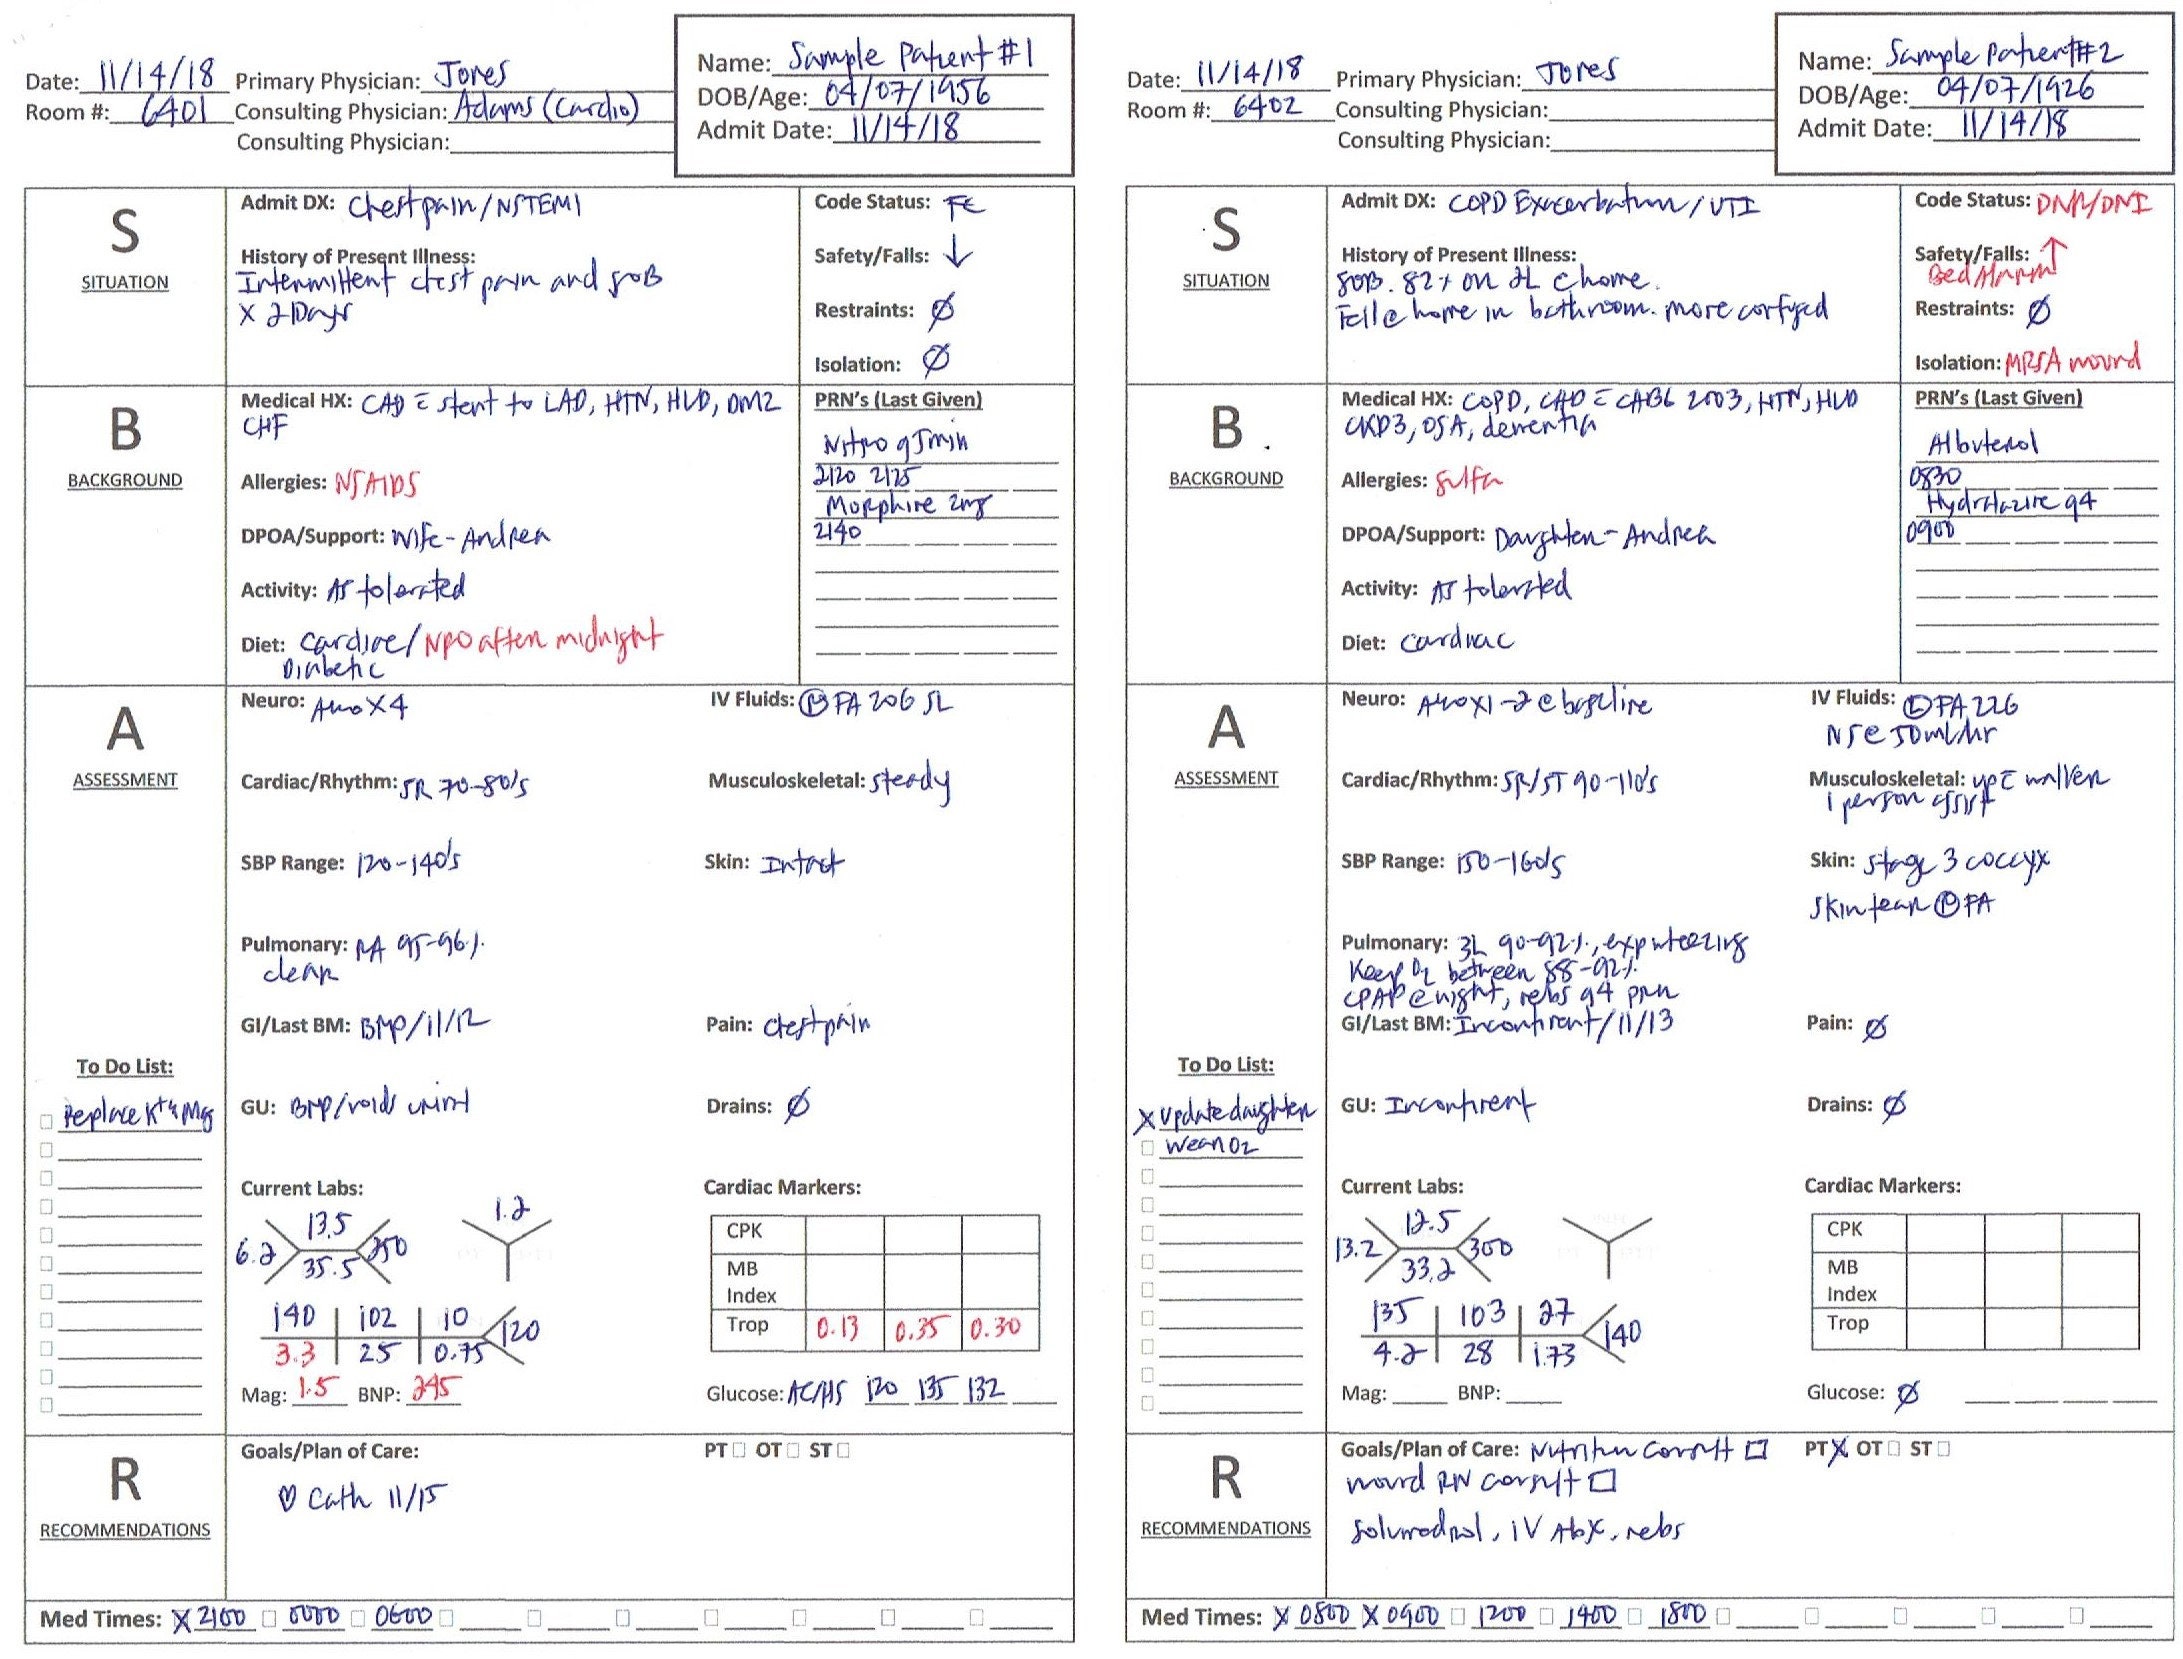 Date: 11/14/18 Primary Physician: Jones
Room #: 6401 Consulting Physician: Adams (Cardio)
Consulting Physician:
Name: Sample Patient #1
DOB/Age: 04/07/1956
Admit Date: 11/14/18
S
SITUATION
Admit DX: Chest pain/NSTEMI
History of Present Illness:
Intermittent chest pain and SOB
x 2 Days
Code Status: FC
Safety/Falls: ↓
Restraints: Ø
Isolation: Ø
B
BACKGROUND
Medical HX: CAD c̄ stent to LAD, HTN, HLD, DM2
CHF
Allergies: NSAIDS
DPOA/Support: Wife - Andrea
Activity: As tolerated
Diet: Cardiac/ NPO after midnight
Diabetic
PRN's (Last Given)
Nitro q5min
2120 2125
Morphine 2mg
2140
A
ASSESSMENT
Neuro: A+Ox4
IV Fluids: Ⓡ FA 20G SL
Cardiac/Rhythm: SR 70-80's
Musculoskeletal: steady
SBP Range: 120-140's
Skin: Intact
Pulmonary: RA 95-96%
clear
GI/Last BM: BRP/11/12
Pain: Chest pain
GU: BRP/voids urinal
Drains: Ø
To Do List:
Replace K+ & Mg
Current Labs:
6.2 13.5 35.5 250
1.2
140 102 10 120
3.3 25 0.75
Mag: 1.5 BNP: 245
Cardiac Markers:
CPK
MB
Index
Trop 0.13 0.35 0.30
Glucose: AC/HS 120 135 132
R
RECOMMENDATIONS
Goals/Plan of Care:
♡ Cath 11/15
PT □ OT □ ST □
Med Times: X 2100 □ 0000 □ 0600 □
Date: 11/14/18 Primary Physician: Jones
Room #: 6402 Consulting Physician:
Consulting Physician:
Name: Sample Patient #2
DOB/Age: 04/07/1926
Admit Date: 11/14/18
S
SITUATION
Admit DX: COPD Exacerbation/UTI
History of Present Illness:
SOB. 82% on 2L @ home.
Fell @ home in bathroom. more confused
Code Status: DNR/DNI
Safety/Falls: ↑
Bed Alarm
Restraints: Ø
Isolation: MRSA wound
B
BACKGROUND
Medical HX: COPD, CAD c̄ CABG 2003, HTN, HLD
CKD3, OSA, dementia
Allergies: Sulfa
DPOA/Support: Daughter - Andrea
Activity: As tolerated
Diet: Cardiac
PRN's (Last Given)
Albuterol
0830
Hydralazine q4
0900
A
ASSESSMENT
Neuro: A+Ox1-2 @ baseline
IV Fluids: Ⓛ FA 22G
NS @ 50ml/hr
Cardiac/Rhythm: SR/ST 90-110's
Musculoskeletal: up c̄ walker
1 person assist
SBP Range: 150-160's
Skin: stage 3 coccyx
Skin tear Ⓡ FA
Pulmonary: 3L 90-92%, exp wheezing
Keep O2 between 88-92%
CPAP @ night, nebs q4 prn
GI/Last BM: Incontinent/11/13
Pain: Ø
GU: Incontinent
Drains: Ø
To Do List:
X Update daughter
□ Wean O2
Current Labs:
13.2 12.5 33.2 300
135 103 27 140
4.2 28 1.73
Mag: BNP:
Cardiac Markers:
CPK
MB
Index
Trop
Glucose: Ø
R
RECOMMENDATIONS
Goals/Plan of Care: Nutrition consult □
wound RN consult □
Solumedrol, IV Abx, nebs
PT X OT □ ST □
Med Times: X 0800 X 0900 □ 1200 □ 1400 □ 1800 □